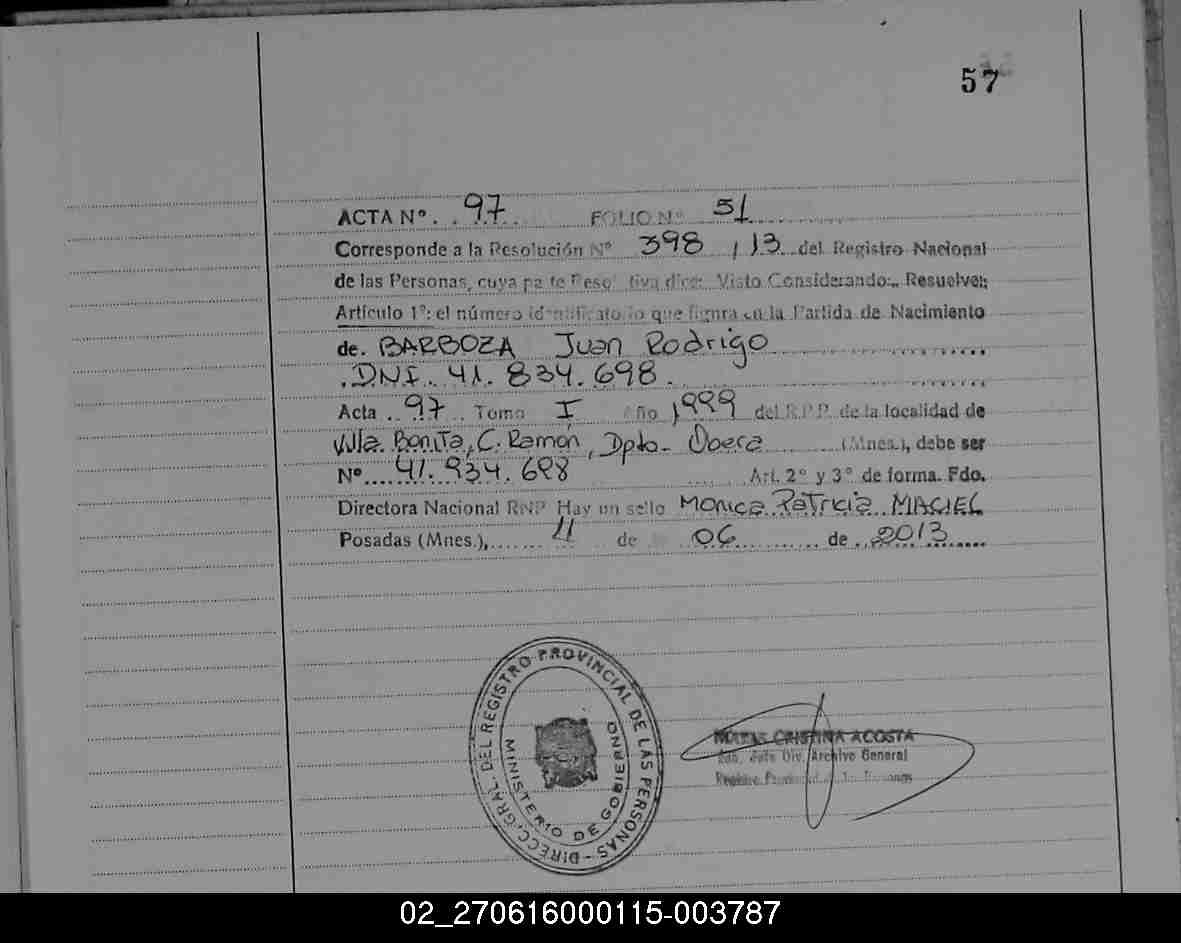 57
ACTA Nº 97 FOLIO Nº 51
Corresponde a la Resolución Nº 398 / 13 del Registro Nacional
de las Personas, cuya parte Resolutiva dice: Visto Considerando: Resuelve:
Artículo 1º: el número identificatorio que figura en la Partida de Nacimiento
de. BARBOZA Juan Rodrigo
DNI. 41.834.698
Acta 97 Tomo I Año 1999 del R.P.P. de la localidad de
Villa Bonita, C. Ramón, Dpto. Oberá (Mnes.), debe ser
Nº 41.934.698 Art. 2º y 3º de forma. Fdo.
Directora Nacional RNP Hay un sello Monica Patricia MACIEL
Posadas (Mnes.), 11 de 06 de 2013
DIRECC. GRAL. DEL REGISTRO PROVINCIAL DE LAS PERSONAS -
MINISTERIO DE GOBIERNO
CRISTINA ACOSTA
Jefe Div. Archivo General
Registro Provincial de las Personas
02_270616000115-003787